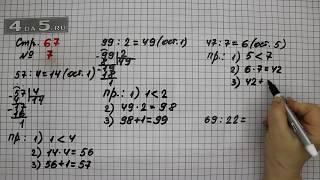 4da5.ru
Стр. 67
№ 7
57 : 4 = 14 (ост. 1)
57 | 4
4 | 14
17
16
1
Пр.: 1) 1 < 4
2) 14 · 4 = 56
3) 56 + 1 = 57
99 : 2 = 49 (ост. 1)
99 | 2
8 | 49
19
18
1
Пр.: 1) 1 < 2
2) 49 · 2 = 98
3) 98 + 1 = 99
47 : 7 = 6 (ост. 5)
Пр.: 1) 5 < 7
2) 6 · 7 = 42
3) 42 +
69 : 22 =